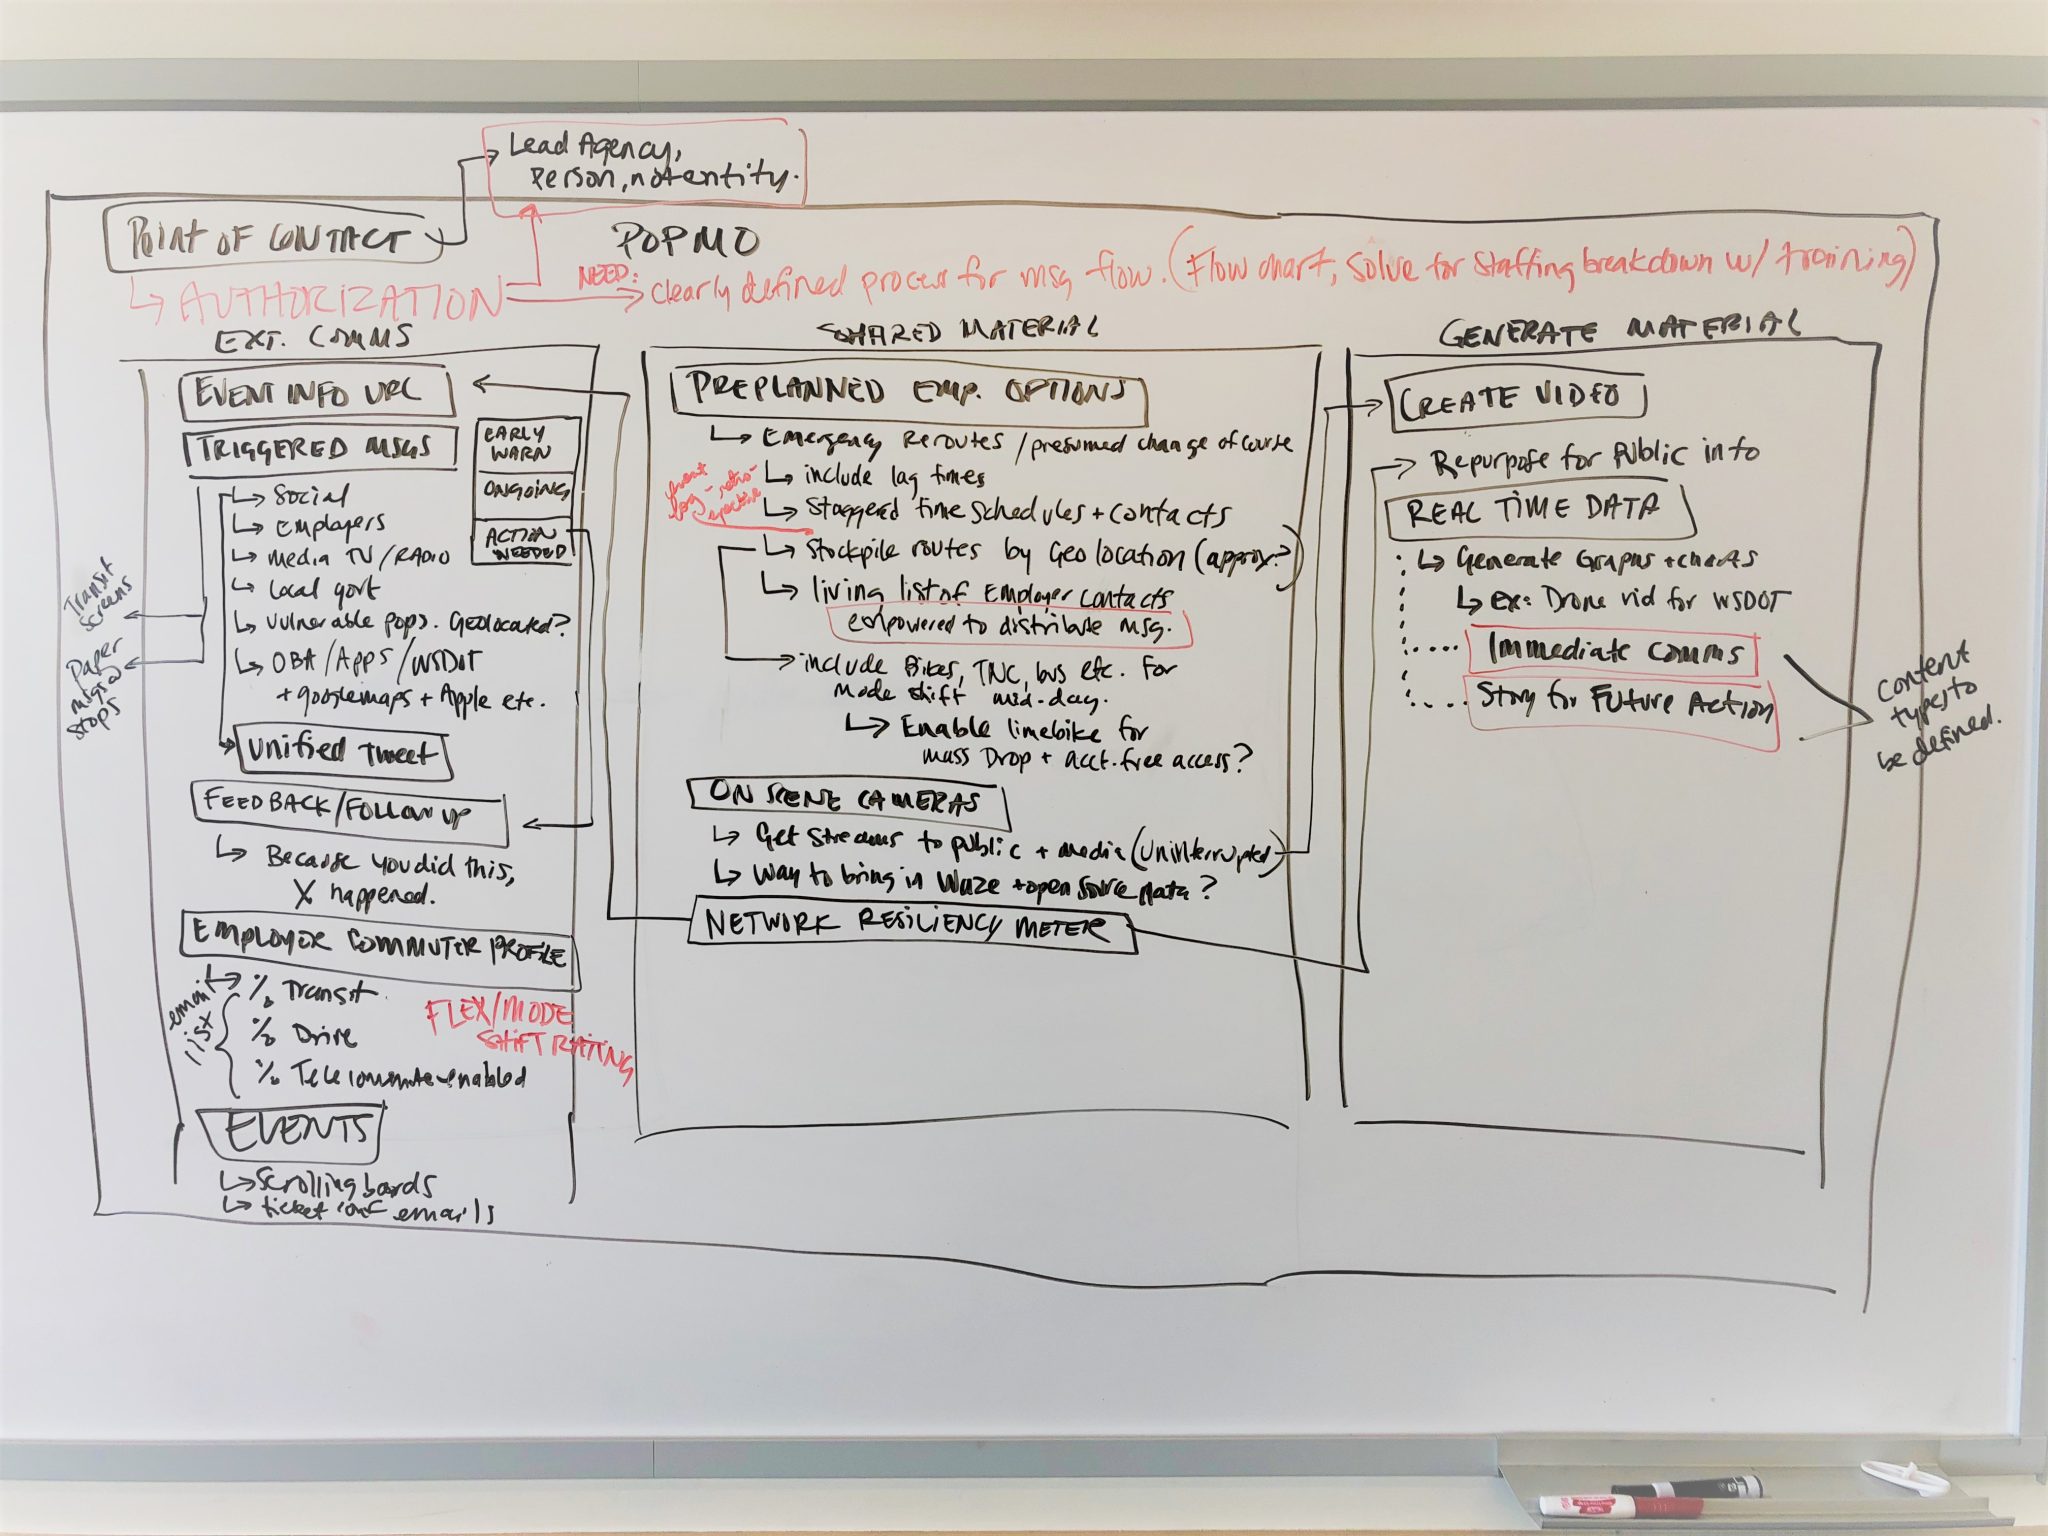 Lead Agency,
Person, not entity.
POINT OF CONTACT
POPMO
AUTHORIZATION
NEED: clearly defined process for msg flow. (Flow chart, Solve for Staffing breakdown w/ training)
EXT. COMMS
EVENT INFO URL
TRIGGERED MSGS
EARLY
WARN
ONGOING
ACTION
NEEDED
Social
Employers
media TV/RADIO
Local govt
Vulnerable pops. Geolocated?
OBA/Apps/WSDOT
+ googlemaps + Apple etc.
Transit
Screens
Paper
msgs@
stops
Unified Tweet
FEEDBACK/FOLLOW UP
Because you did this,
X happened.
EMPLOYER COMMUTER PROFILE
email
list
% Transit
% Drive
% Telecommute-enabled
FLEX/MODE
SHIFT RATING
EVENTS
Scrolling boards
ticket conf emails
SHARED MATERIAL
PREPLANNED EMP. OPTIONS
Emergency Reroutes / presumed change of course
include lag times
Staggered time schedules + contacts
event
log - retro-
spective
Stockpile routes by Geolocation (approx?)
living list of Employer contacts
empowered to distribute msg.
include Bikes, TNC, bus etc. for
mode shift mid-day.
Enable limebike for
mass Drop + acct-free access?
ON SCENE CAMERAS
Get streams to public + media (uninterrupted)
Way to bring in Waze + open source data?
NETWORK RESILIENCY METER
GENERATE MATERIAL
CREATE VIDEO
Repurpose for public info
REAL TIME DATA
Generate Graphs + charts
ex: Drone vid for WSDOT
Immediate comms
Story for Future Action
Content
types to
be defined.